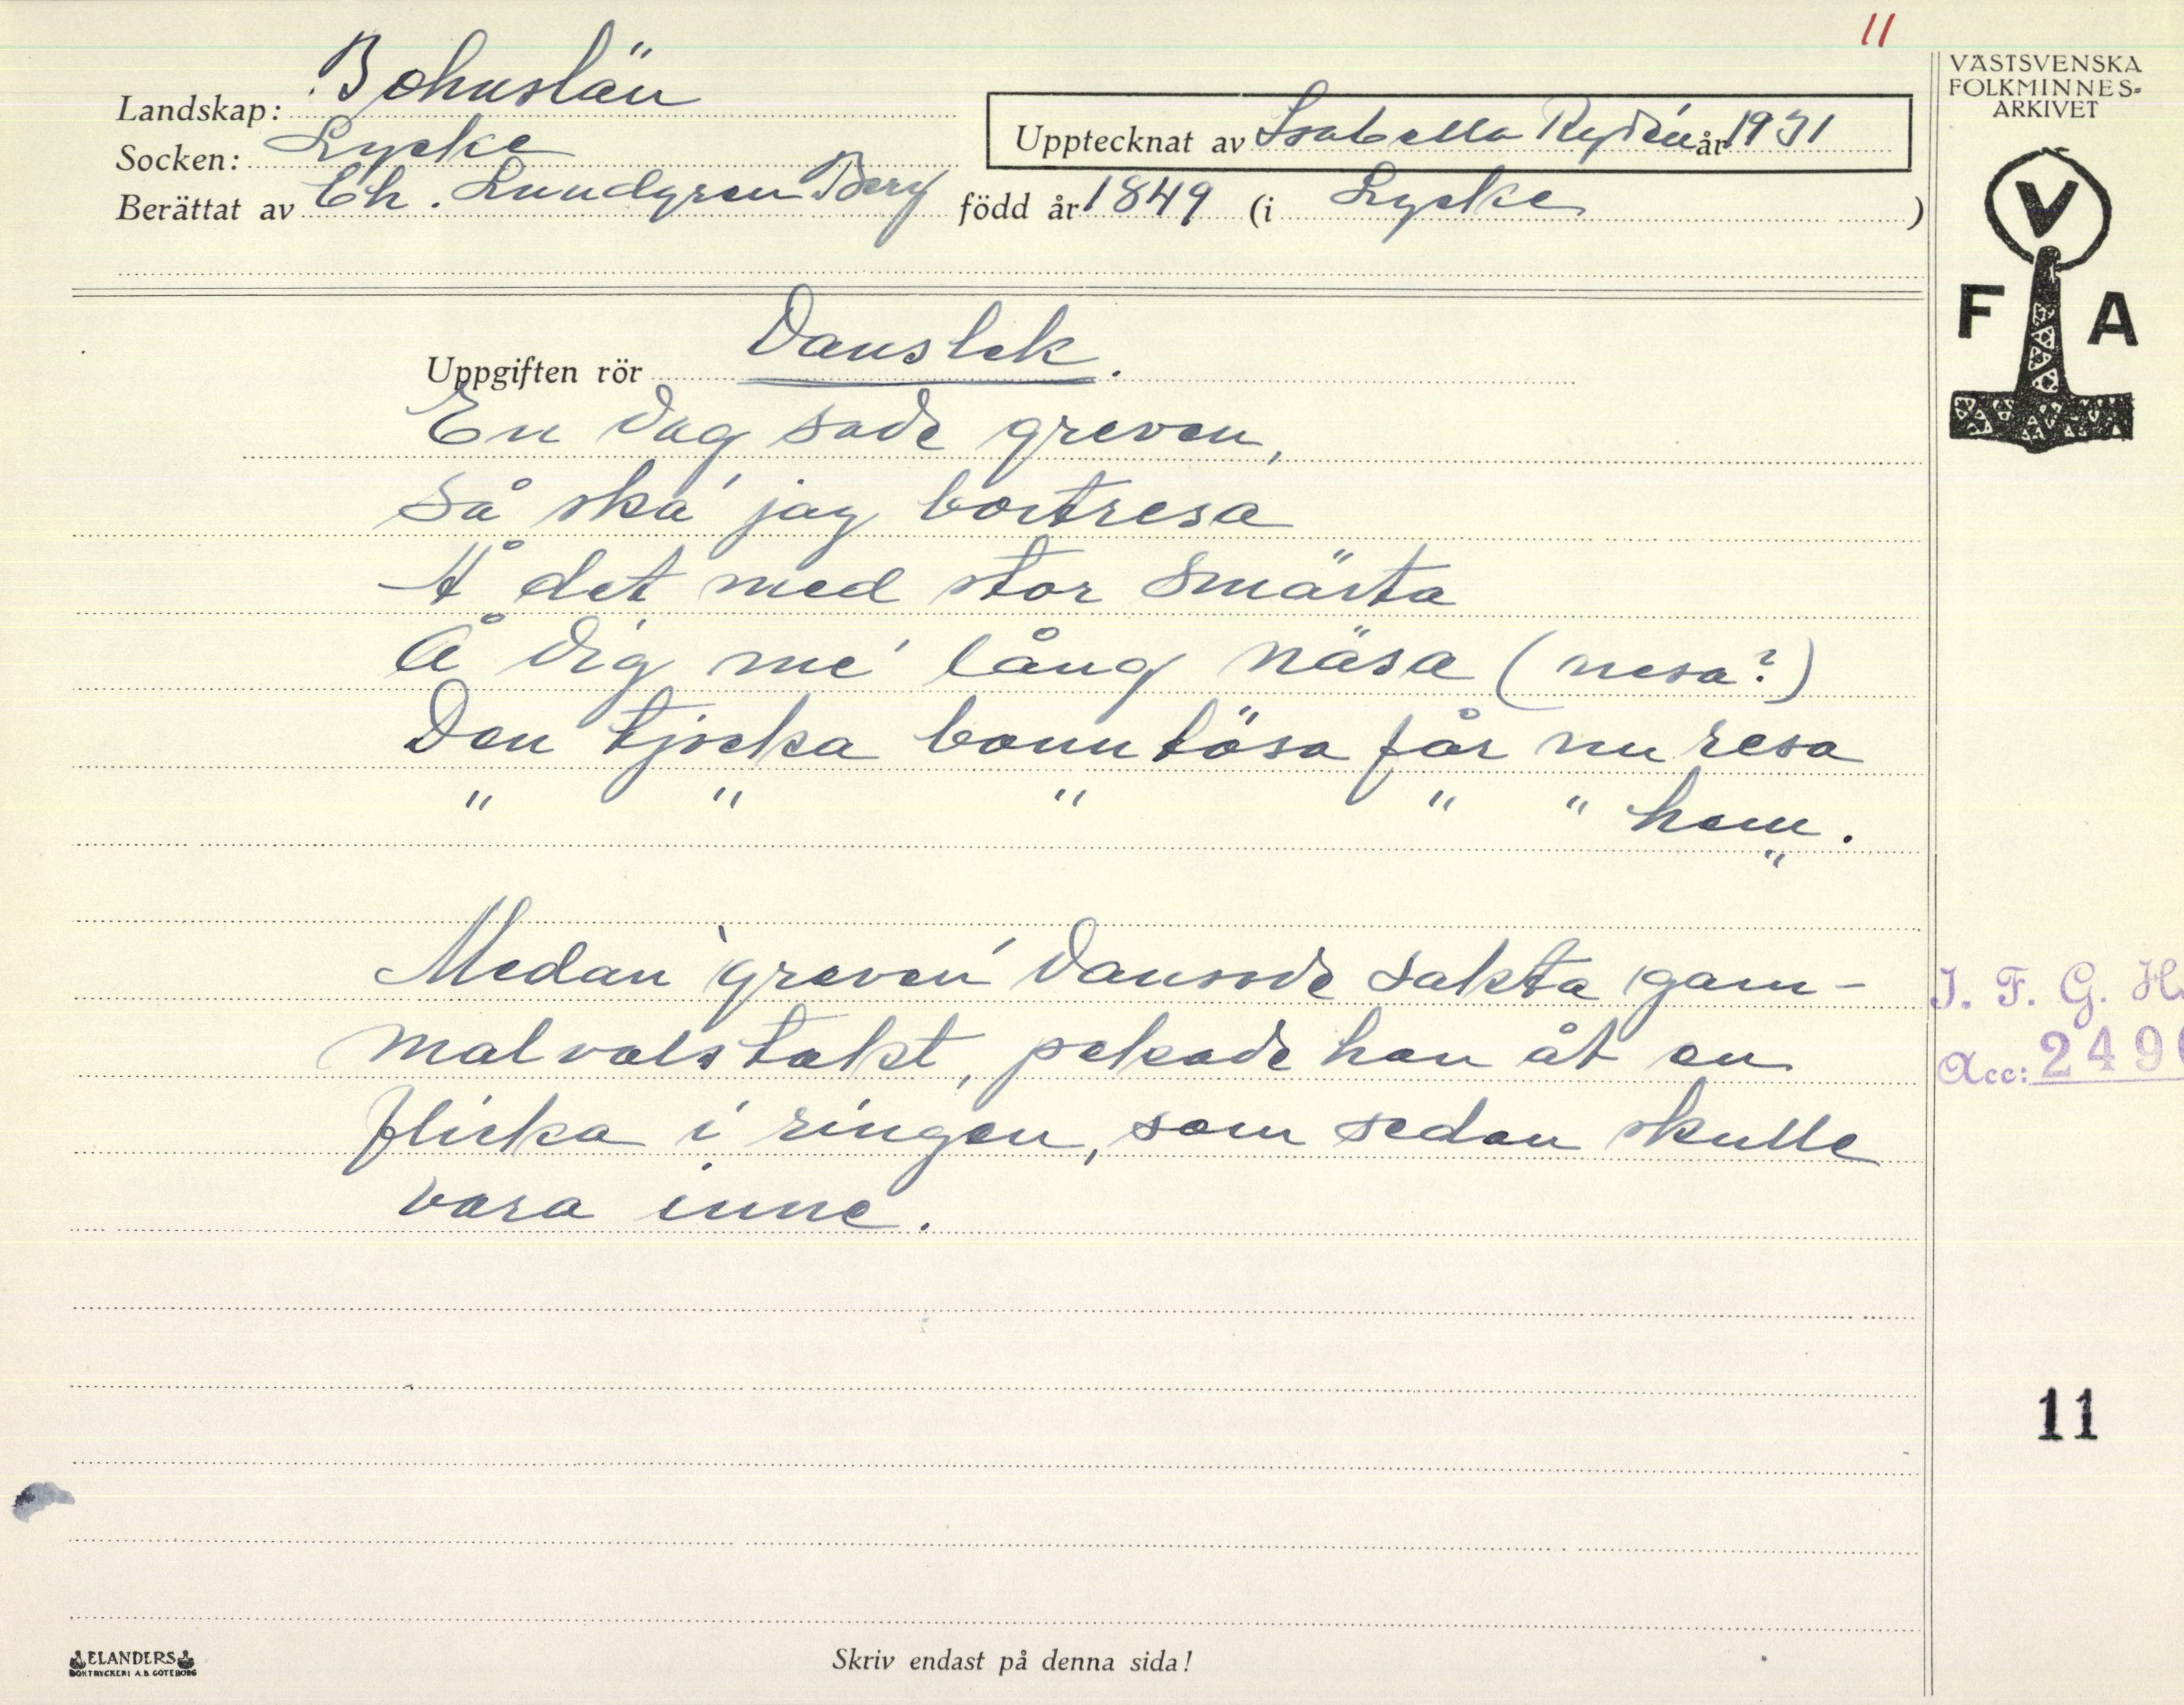 11
VÄSTSVENSKA
FOLKMINNES-
ARKIVET
V
F A
Landskap: Bohuslän
Socken: Lycke
Upptecknat av Isabella Rydén år 1931
Berättat av Ch. Lundgren Berg född år 1849 (i Lycke )
Uppgiften rör Danslek.
En dag sade greven,
Så ska' jag bortresa
Å det med stor smärta
Å dig me' lång näsa (nesa?)
Den tjocka bonntösa får nu resa
" " " " " hem.
"
Medan 'greven' dansade sakta gam-
mal valstakt, pekade han åt en
flicka i ringen, som sedan skulle
vara inne.
I. F. G. H.
Acc: 249
11
ELANDERS
BOKTRYCKERI A.B. GÖTEBORG
Skriv endast på denna sida!